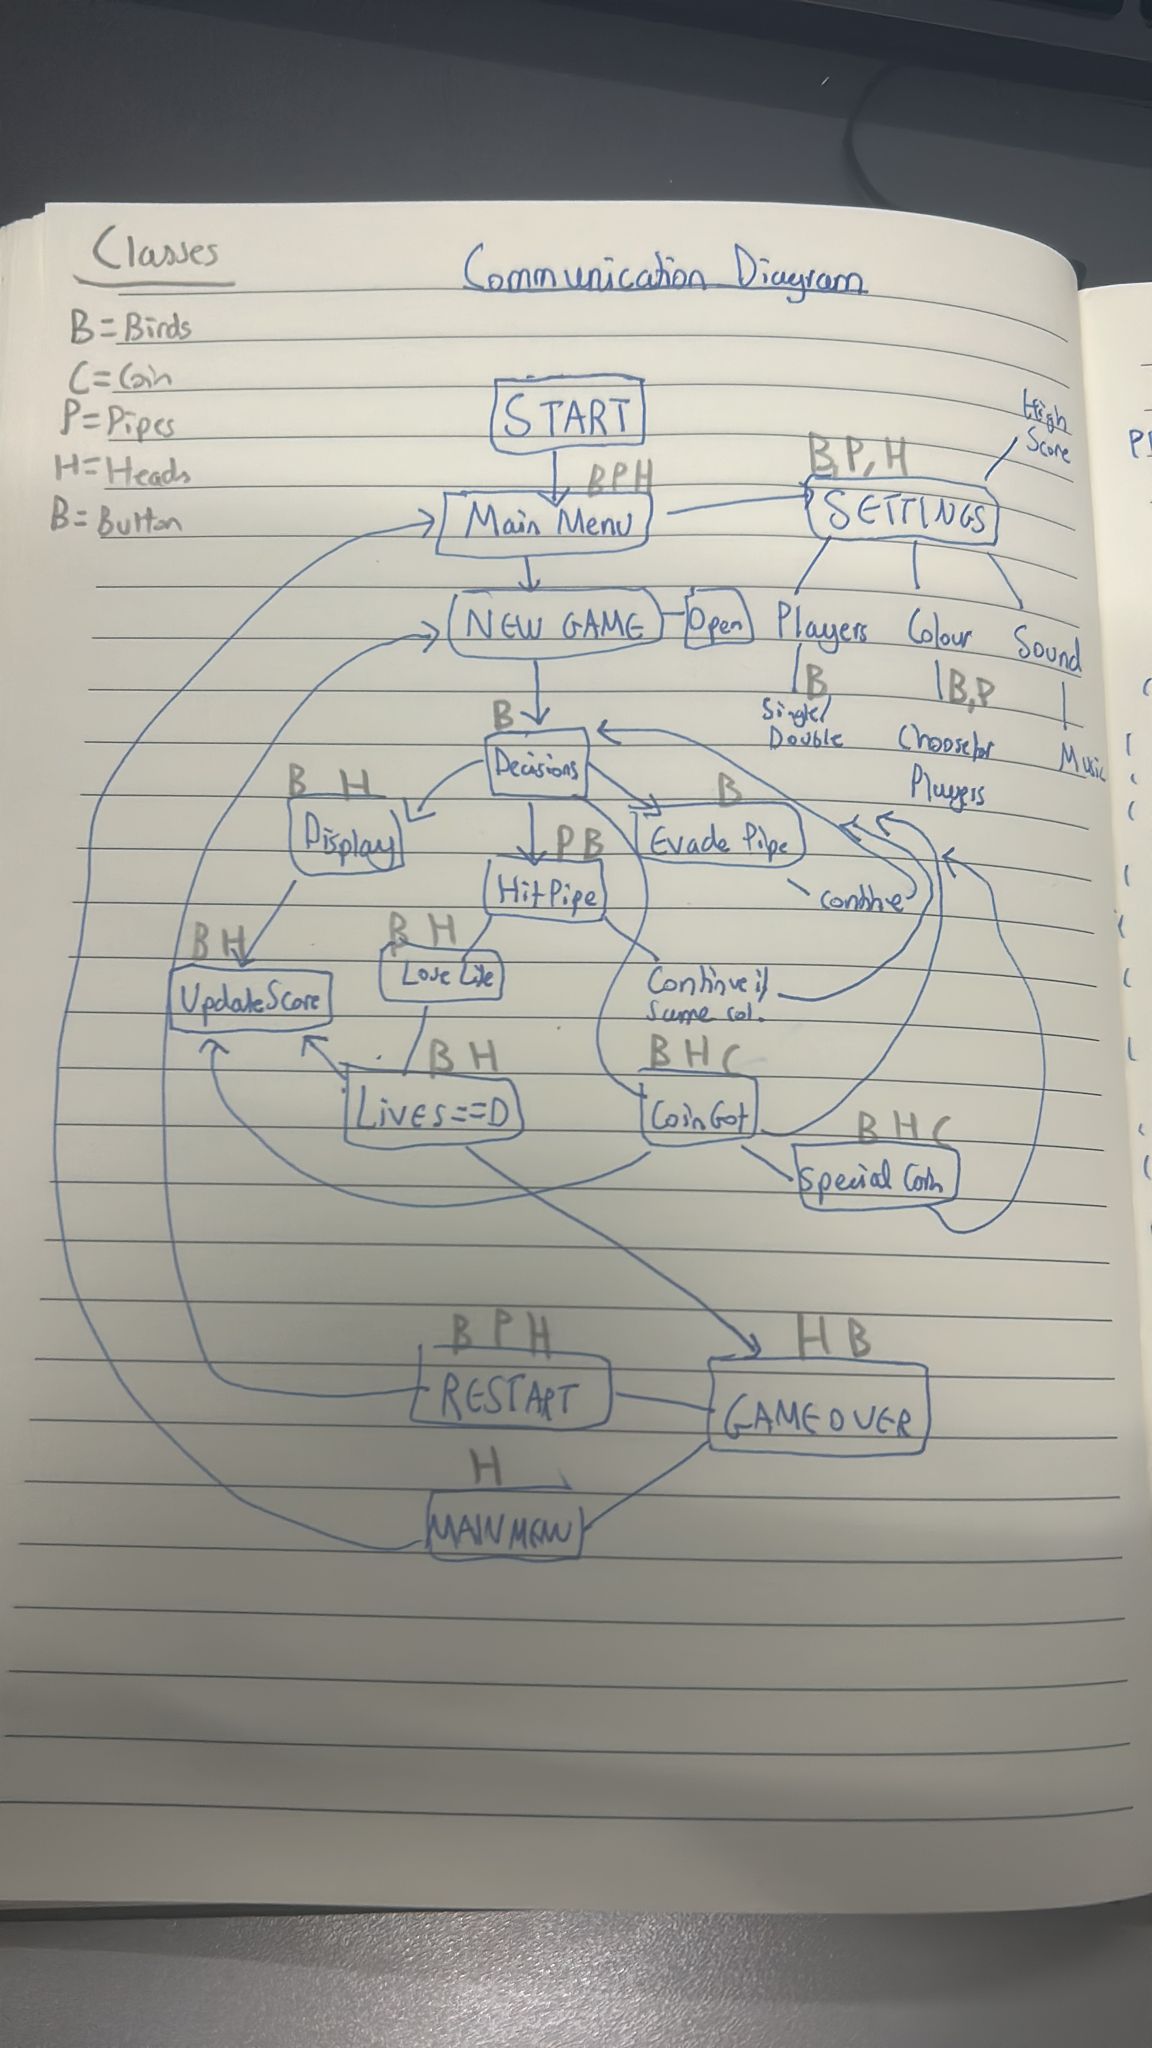 Classes
Communication Diagram
B=Birds
C=Coin
P=Pipes
H=Heads
B=Button
START
High
Score
B P H
B, P, H
Main Menu
SETTINGS
NEW GAME
Open
Players
Colour
Sound
B
B,P
Single/
Double
Choose for
Players
Music
B
Decisions
B H
Display
B
Evade Pipe
P B
HitPipe
continue
B H
UpdateScore
B H
Lose Life
Continue if
Same col.
B H
Lives==0
B H C
CoinGot
B H C
Special Coin
B P H
RESTART
H B
GAMEOVER
H
MAINMENU